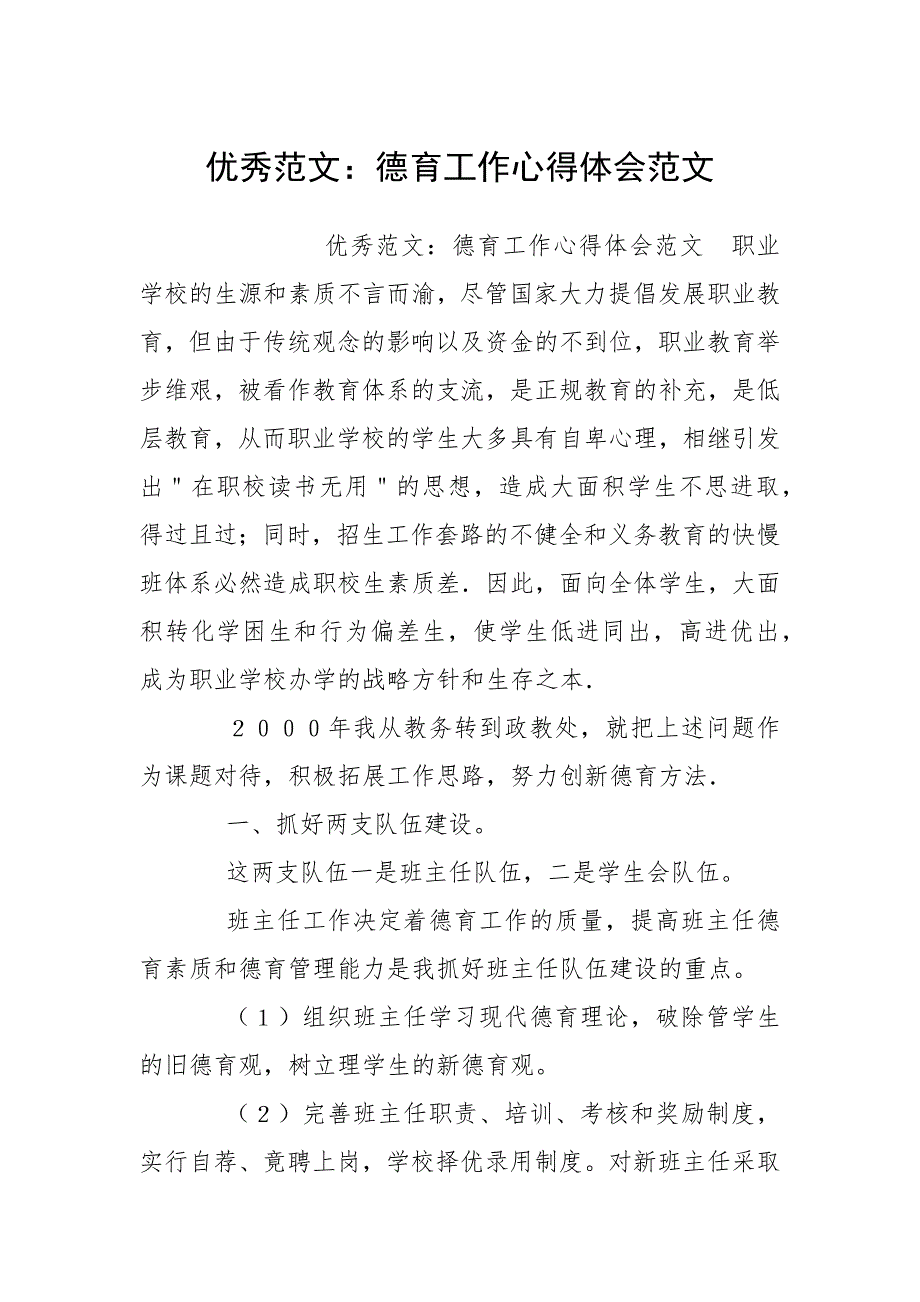 优秀范文：德育工作心得体会范文
优秀范文：德育工作心得体会范文　职业
学校的生源和素质不言而渝，尽管国家大力提倡发展职业教
育，但由于传统观念的影响以及资金的不到位，职业教育举
步维艰，被看作教育体系的支流，是正规教育的补充，是低
层教育，从而职业学校的学生大多具有自卑心理，相继引发
出＂在职校读书无用＂的思想，造成大面积学生不思进取，
得过且过；同时，招生工作套路的不健全和义务教育的快慢
班体系必然造成职校生素质差．因此，面向全体学生，大面
积转化学困生和行为偏差生，使学生低进同出，高进优出，
成为职业学校办学的战略方针和生存之本．
２０００年我从教务转到政教处，就把上述问题作
为课题对待，积极拓展工作思路，努力创新德育方法．
一、抓好两支队伍建设。
这两支队伍一是班主任队伍，二是学生会队伍。
班主任工作决定着德育工作的质量，提高班主任德
育素质和德育管理能力是我抓好班主任队伍建设的重点。
（１）组织班主任学习现代德育理论，破除管学生
的旧德育观，树立理学生的新德育观。
（２）完善班主任职责、培训、考核和奖励制度，
实行自荐、竟聘上岗，学校择优录用制度。对新班主任采取